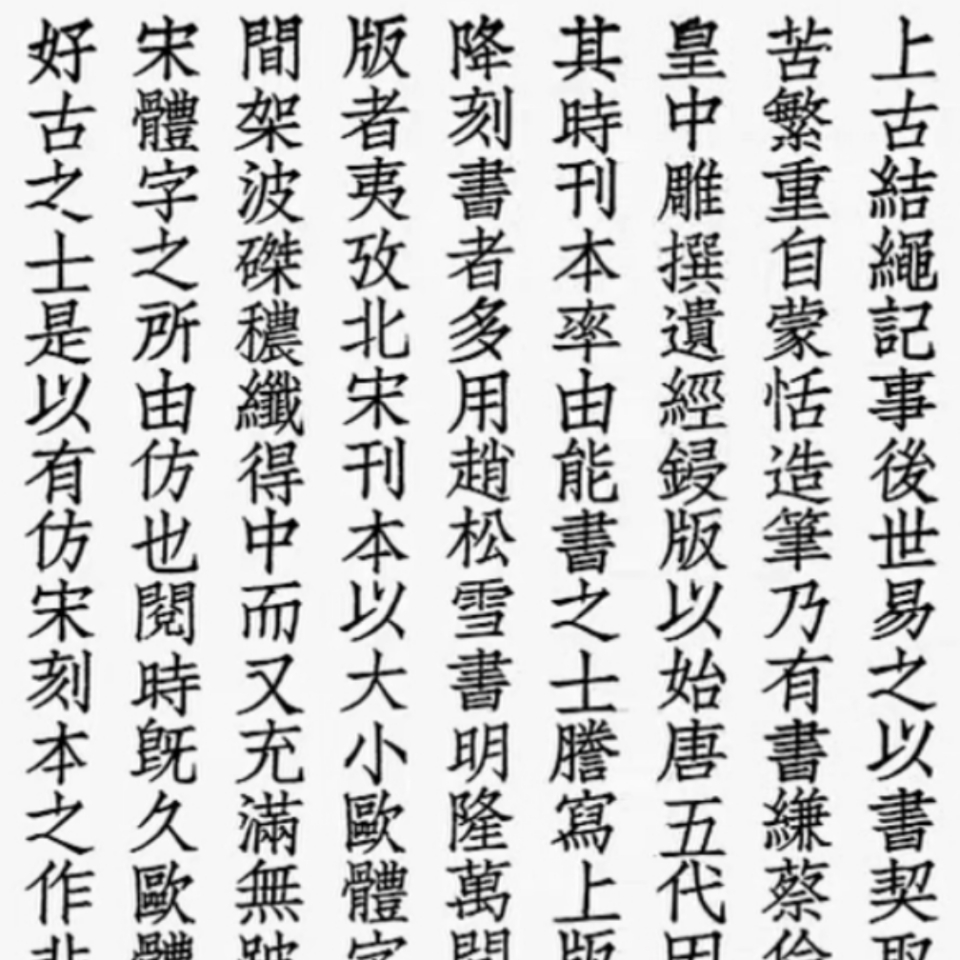 上古結繩記事後世易之以書契取
苦繁重自蒙恬造筆乃有書縑蔡倫
皇中雕撰遺經鋟版以始唐五代因
其時刊本率由能書之士謄寫上版
降刻書者多用趙松雪書明隆萬間
版者夷攷北宋刊本以大小歐體字
間架波磔穠纖得中而又充滿無跛
宋體字之所由仿也閱時旣久歐體
好古之士是以有仿宋刻本之作非